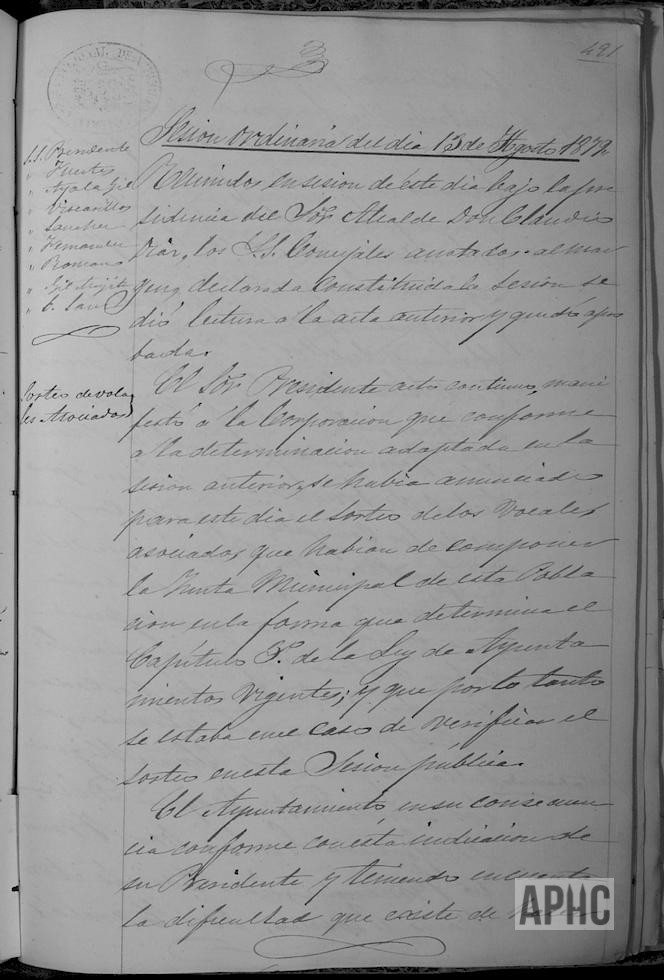 491
Sesion ordinaria del dia 13 de Agosto 1872
S.S. Presidente
" Fuertes
" Ayala Gil
" Viscarillos
" Sanchez
" Fernandez
" Romano
" Gil
Reunidos en sesion de este dia bajo la pre
sidencia del Sór. Alcalde Don Claudio
Diaz, los S.S. Concejales anotados al mar
gen, declarada Constituida la sesion se
dió lectura á la acta anterior y quedó apro
bada.
Sorteo de voca
les Asociados
El Sór. Presidente acto continuo, mani
festó á la Corporacion que conforme
á la determinacion adaptada en la
sesion anterior, se habia anunciado
para este dia el sorteo de los Vocales
asociados, que habian de componer
la Junta Municipal de esta Pobla
cion en la forma que determina el
Capitulo 3º. de la Ley de Ayunta
mientos Vigentes; y que por lo tanto
se estaba en el caso de verificar el
sorteo en esta Sesion pública.
El Ayuntamiento en su consecuen
cia conforme con esta indicacion de
su Presidente y teniendo en cuenta
la dificultad que existe de hacer
APHC